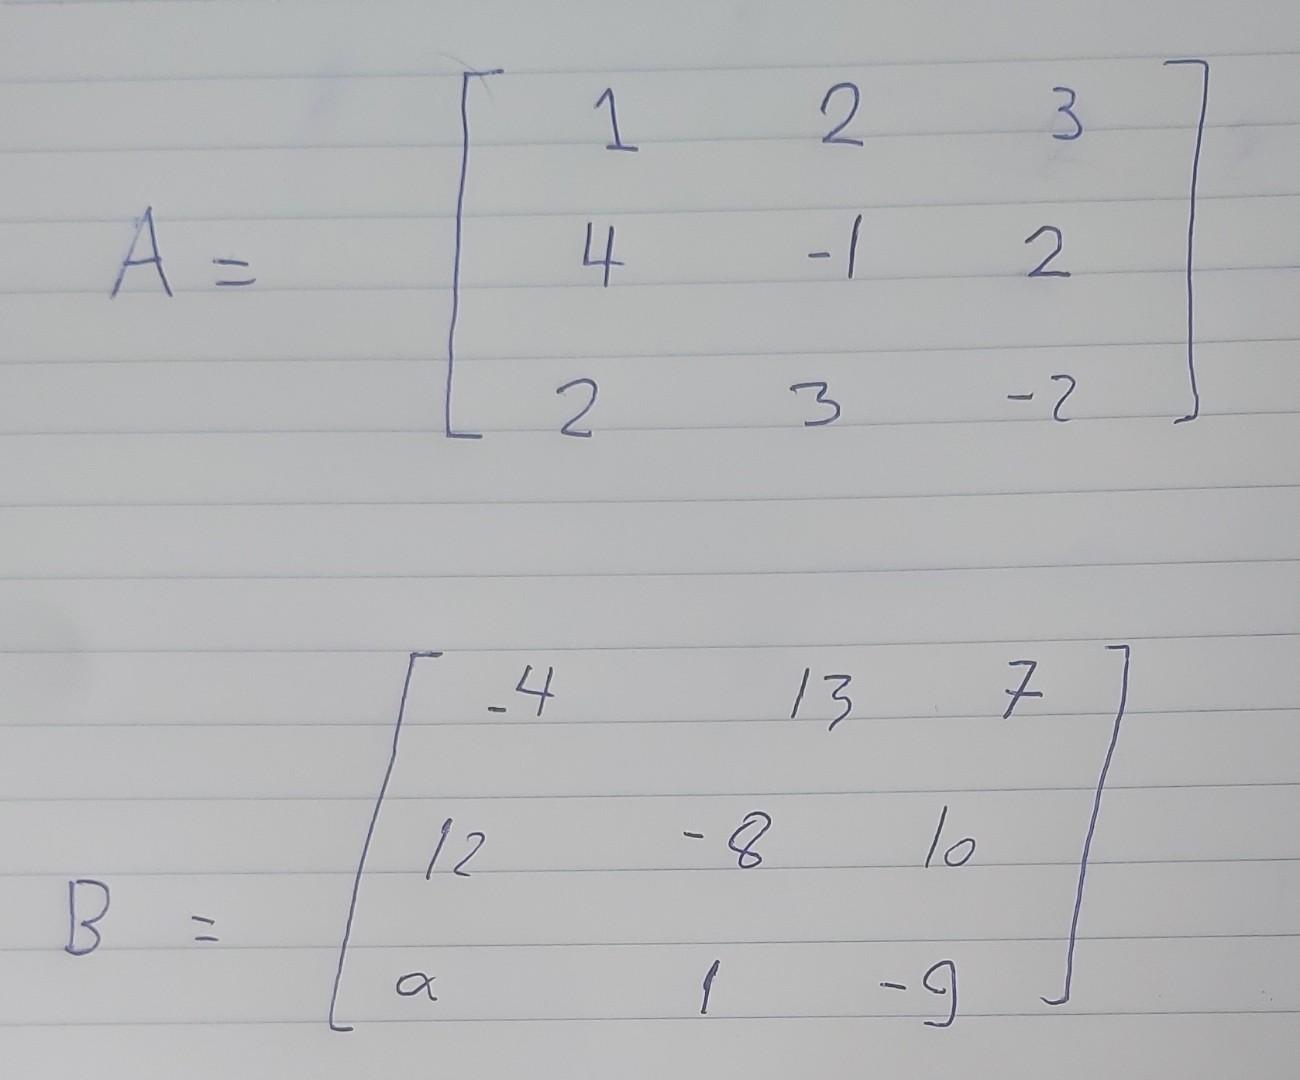 1 2 3
A = 4 -1 2
2 3 -2
-4 13 7
12 -8 10
B = a 1 -9